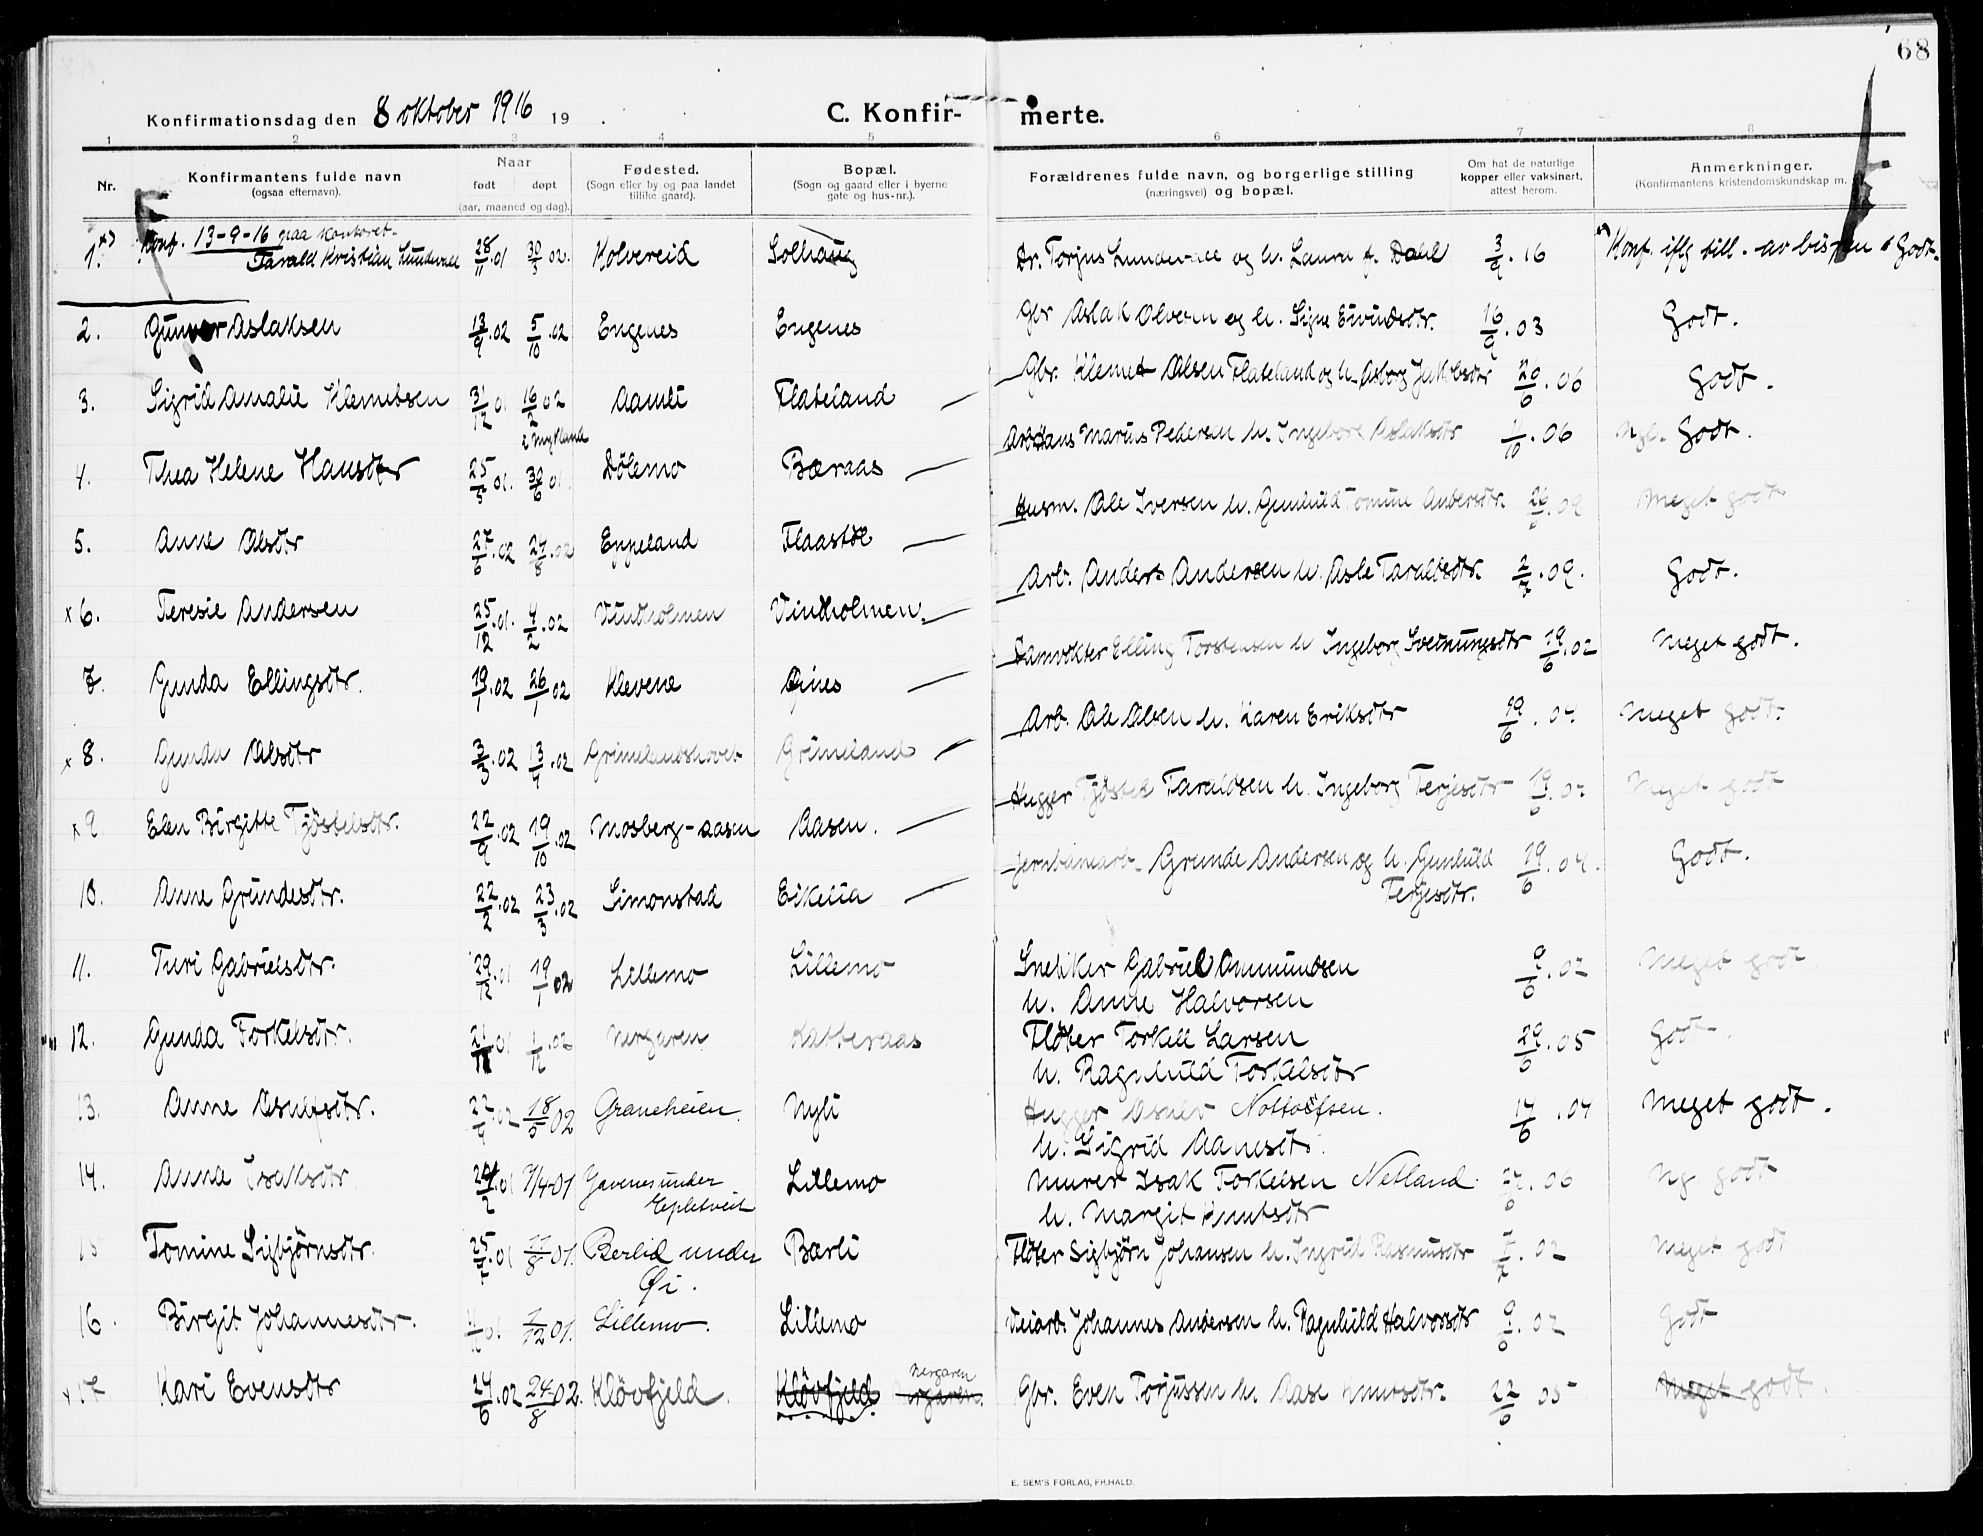 68
Konfirmationsdag den 8 oktober 1916 19 .
C. Konfir- merte.
1 2 3 4 5 6 7 8
Nr.
Konfirmantens fulde navn
(ogsaa efternavn).
Naar
født døpt
(aar, maaned og dag).
Fødested.
(Sogn eller by og paa landet
tillike gaard).
Bopæl.
(Sogn og gaard eller i byerne
gate og hus-nr.).
Forældrenes fulde navn, og borgerlige stilling
(næringsvei) og bopæl.
Om hat de naturlige
kopper eller vaksinert,
attest herom.
Anmerkninger.
(Konfirmantens kristendomskundskap m.
Konf. 13-9-16 paa kontoret.
1. x) Tarald Kristian Lundevall 28/11 01 30/3 02. Kolvereid Solhaug Dr. Torjus Lundevall og h. Laura f. Dahl 3/9. 16 x) Konf. iflg till. av bispen Godt.
2. Gunnar Aslaksen 13/9.02 5/10.02 Engenes Engenes Gbr Aslak Olsen og h. Signe Eivindsdtr. 16/9.03 Godt.
3. Sigrid Amalie Klemetsen 31/12 01 16/2 02 Aamli Flateland — Gbr. Klemet Olsen Flateland og h. Asborg Jakobsdtr 26/6.06 Godt.
i Mykland
4. Thea Helene Hansdtr 25/5 01. 30/6 01. Dölemo Bæraas — Arb Hans Marius Pedersen h. Ingeborg Aslaksdtr 1/10.06 Ngl. Godt.
5. Anne Olsdtr 27/6.02 24/8.02 Eppeland Flaastöl — Husm. Ole Iversen h. Gunhild Tomine Andersdtr. Meget godt
x 6. Teresie Andersen 25/12.01. 4/2.02 Vindholmen Vindholmen. — Arb. Anders Andersen h. Asle Taraldsdtr. 2/7.09. Godt.
7. Gunda Ellingsdtr. 19/1.02 26/1 02 Klevene Öines — Damvokter Elling Torstensen h Ingeborg Sveinungsdtr 19/6.02 Meget godt.
x 8. Gunda Olsdtr 3/3.02 13/4.02 Grimelandshovet Grimeland — Arb. Ole Olsen h. Karen Eriksdtr 19/6.07 Meget godt.
x 9 Elen Birgitte Tjöstelsdtr. 22/9.02 19/10.02 Mosberg-aasen Aasen. — Hugger Tjöstel Taraldsen h. Ingeborg Terjesdtr 19/6.07 Meget godt
10. Anne Grundesdtr. 22/2.02 23/3.02 Simonstad Eikelia — Jernbanearb. Grunde Andersen og h. Gunhild 19/6.04. Godt.
Terjesdtr.
11. Turi Gabrielsdtr. 29/12.01 19/1 02 Lillemo Lillemo Snekker Gabriel Ommundsen 9/6.02 Meget godt
h. Anne Halvorsen
12. Gunda Torkelsdtr. 21/11 01 1/12.02 Nergaren Katteraas Fløter Torkell Larsen 29/6.05 Godt.
h. Ragnhild Torkelsdtr
13. Anne Asulfsdtr. 22/9.02 18/5 02 Graneheien. Nyli Hugger Asulv Nottolfsen. 17/6.04 Meget godt.
h. Sigrid Aanensdtr.
14. Anna Isaksdtr 24/2.01 7/4-01 Gavenes under Lillemo Murer Isak Torkelsen Netland. 27/6.06 Ng godt
Epletveit h. Margit Knutsdtr
15 Tomine Sigbjørnsdtr. 25/7.01 11/8 01. Berlid under Bærli Fløter Sigbjørn Johansen h. Ingrid Rasmusdtr 02 Meget godt
Øi.
16. Birgit Johannesdtr. 01 1/12 01. Lillemo. Lillemo Veiarb. Johannes Andersen h. Ragnhild Halvorsdtr 9/6.02 Godt
x 17 Kari Evensdtr 24/6.02 24/8-02. Klövfjeld. Klövfjeld Nergaren. Nergaren Gbr. Even Torjussen h. Aase Knutsdtr. 22/6 05 Meget godt.
E. SEM'S FORLAG, FR.HALD.